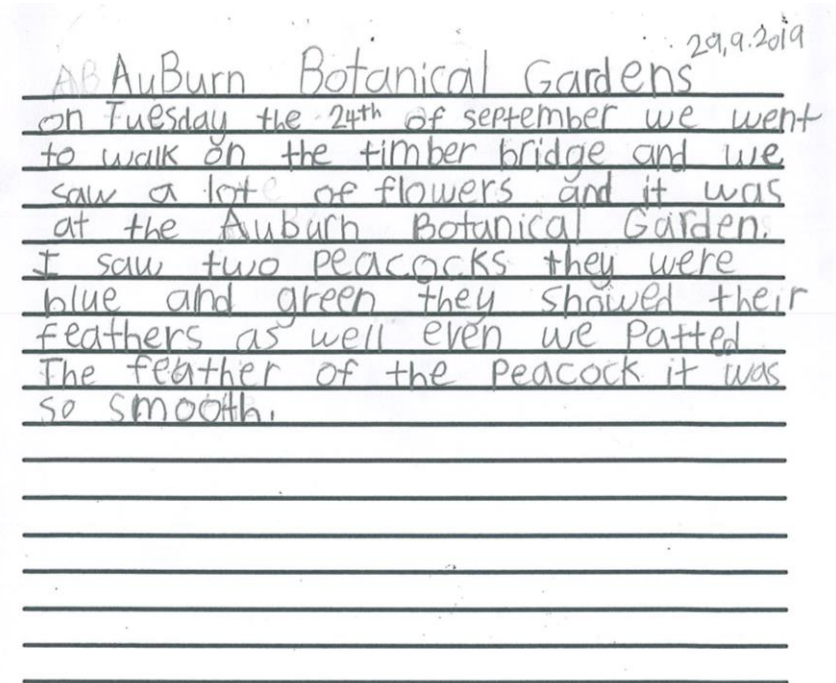 29,9.2019
AuBurn Botanical Gardens
on Tuesday the 24th of september we went
to walk on the timber bridge and we
saw a lot of flowers and it was
at the Auburn Botanical Garden.
I saw two peacocks they were
blue and green they showed their
feathers as well even we patted
The feather of the peacock it was
so smooth.